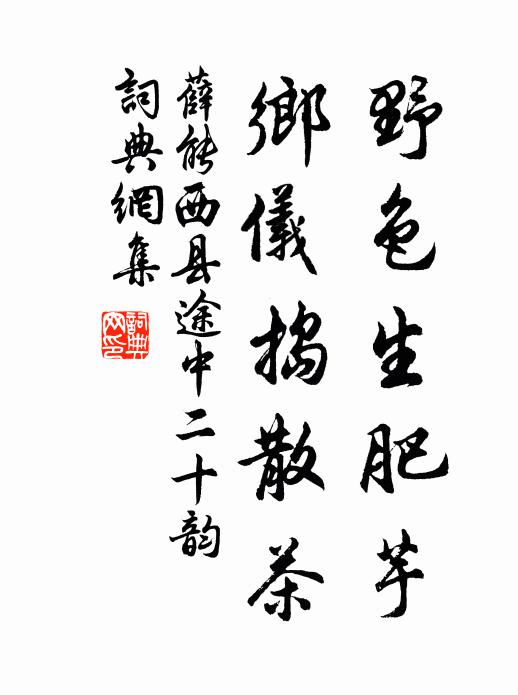 野色生肥芋
鄉儀搗散茶
薛能西县途中二十韵
詞典網集
詞典網印